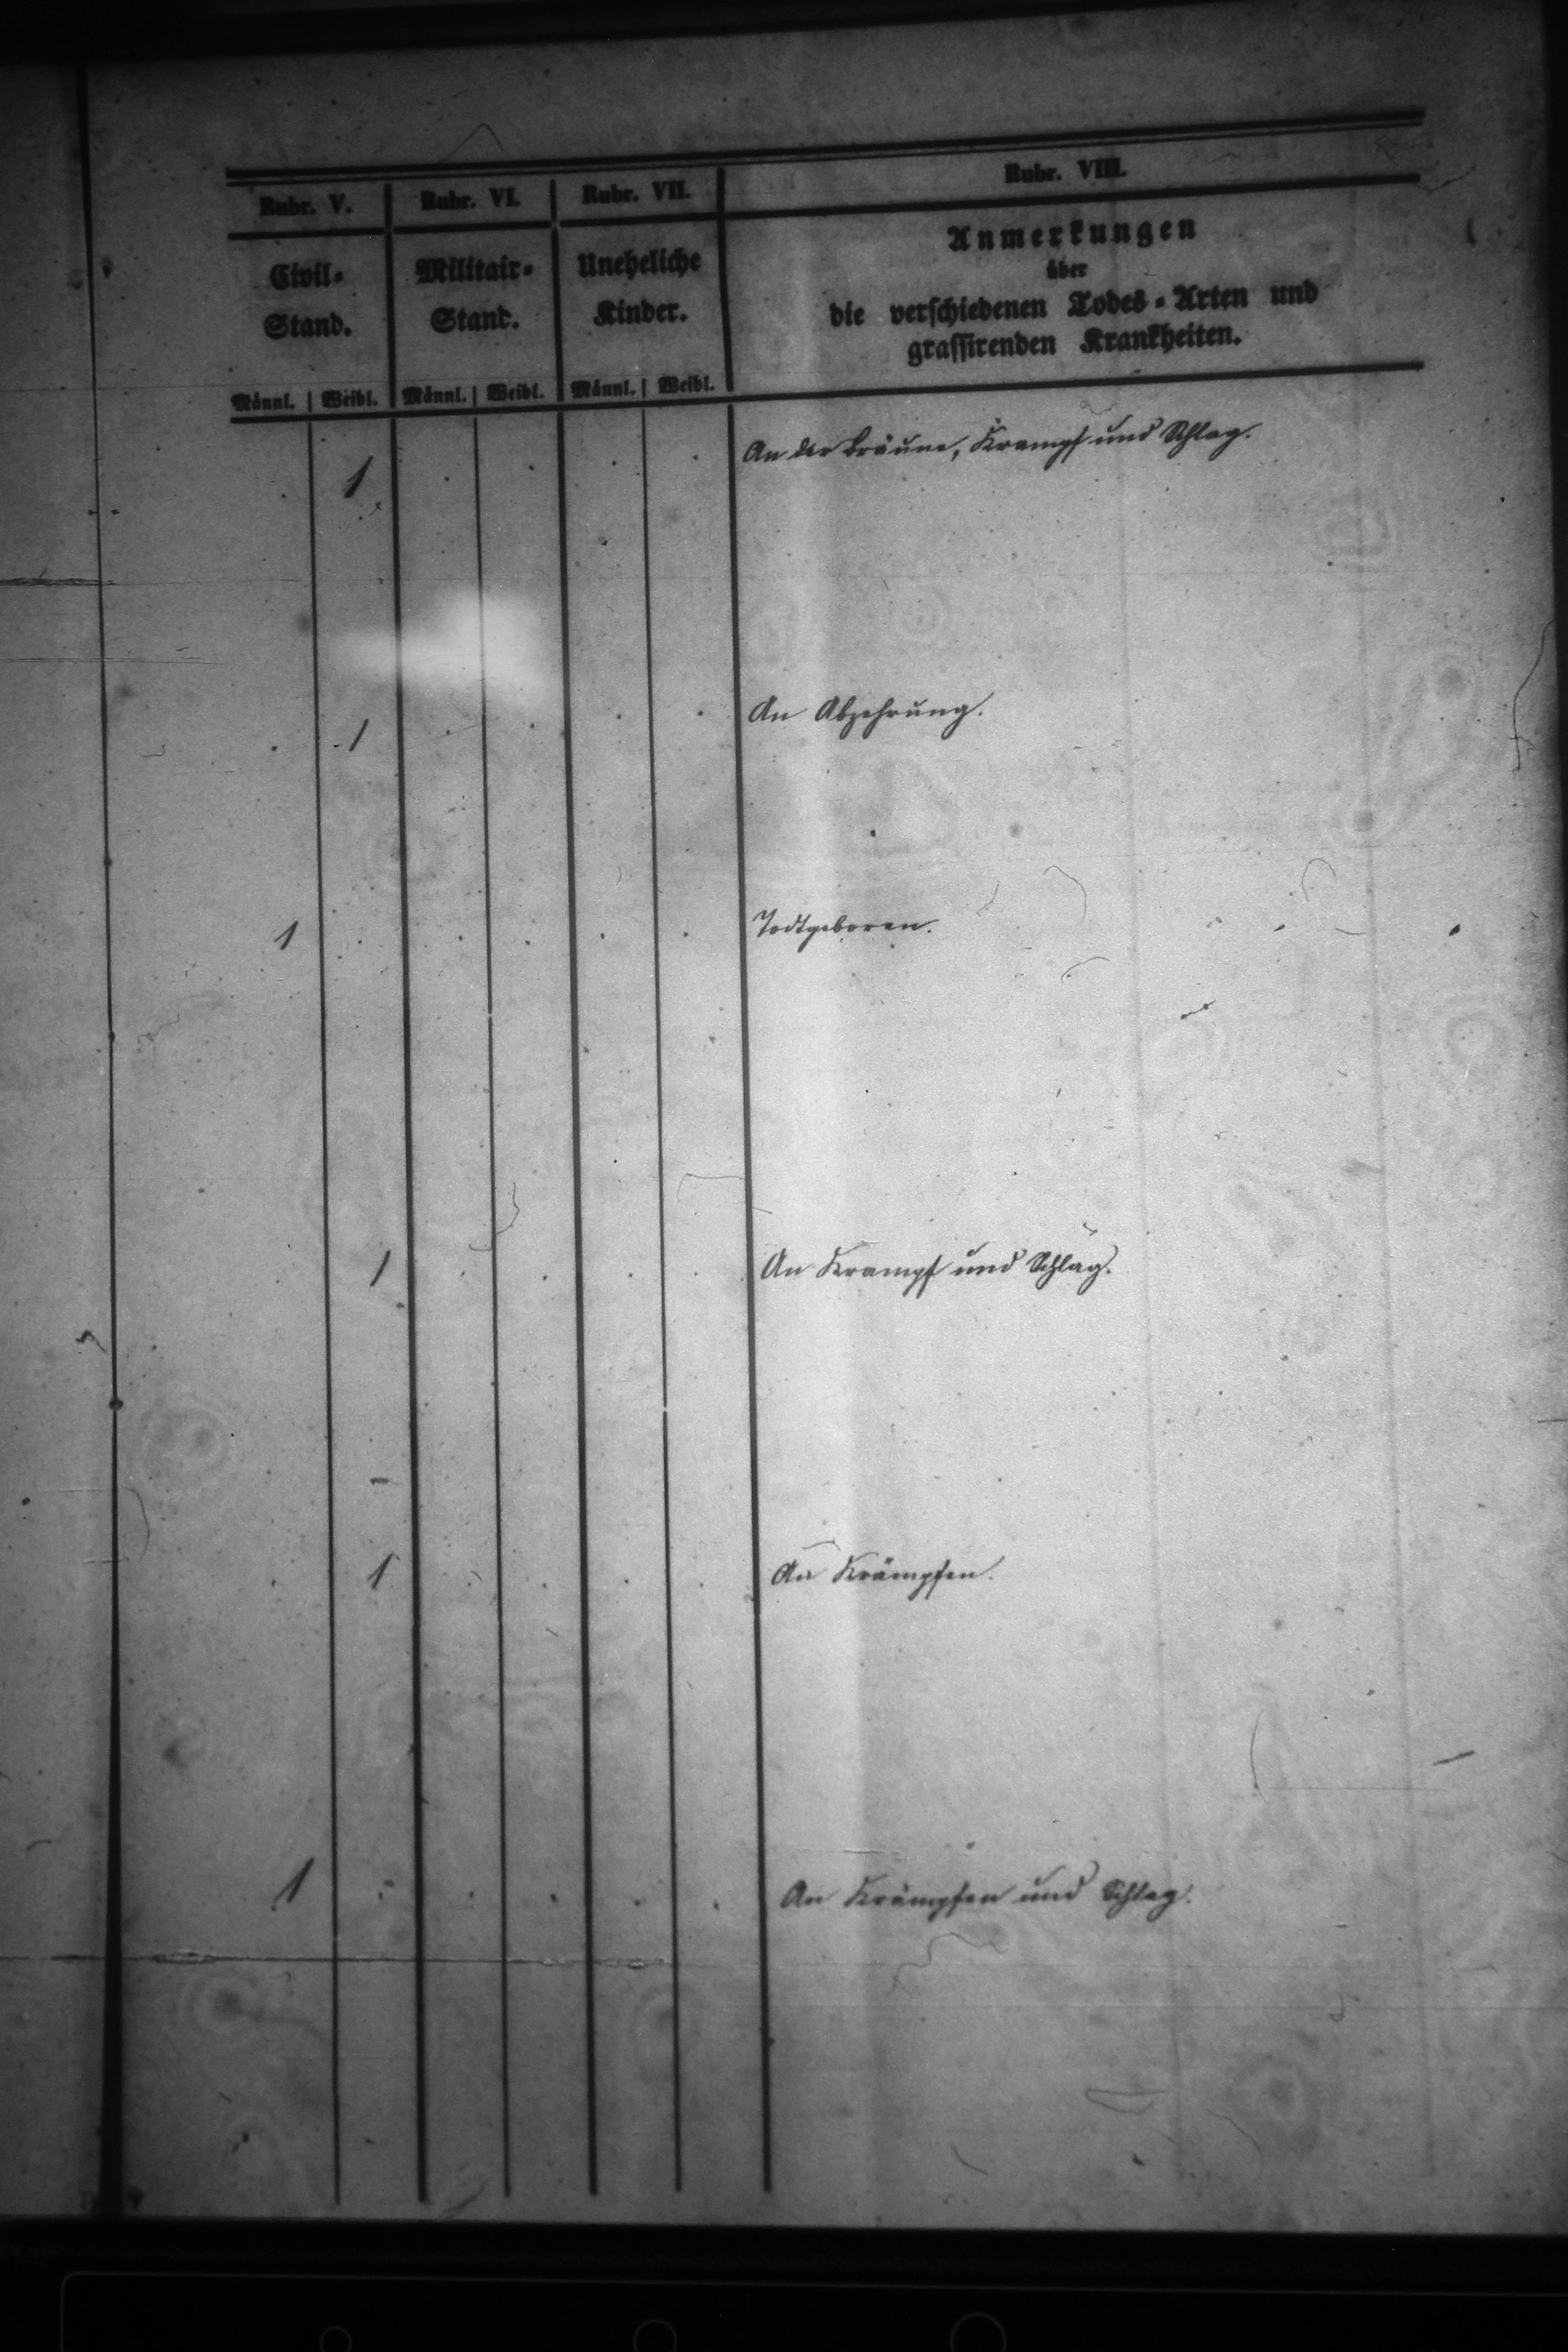 Rubr. V. Rubr. VI. Rubr. VII. Rubr. VIII.
Civil- Militair- Uneheliche Anmerkungen
Stand. Stand. Kinder. über
die verschiedenen Todes-Arten und
grassirenden Krankheiten.
Männl. Weibl. Männl. Weibl. Männl. Weibl.
1 An der Bräune, Krampf und Schlag.
1 An Abzehrung.
1 Todtgeboren.
1 An Krampf und Schlag.
1 An Krämpfen.
1 An Krämpfen und Schlag.